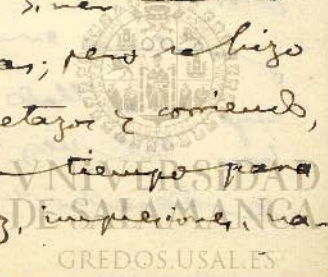 as; pero se hizo
etazos y corriendo,
tiempo para
z, impresiones, na-
VNIVERSIDAD
DE SALAMANCA
GREDOS.USAL.ES